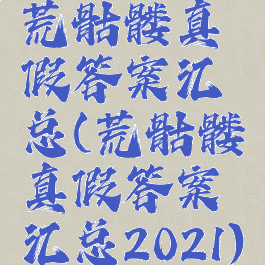 荒骷髅真
假答案汇
总(荒骷髅
真假答案
汇总2021)